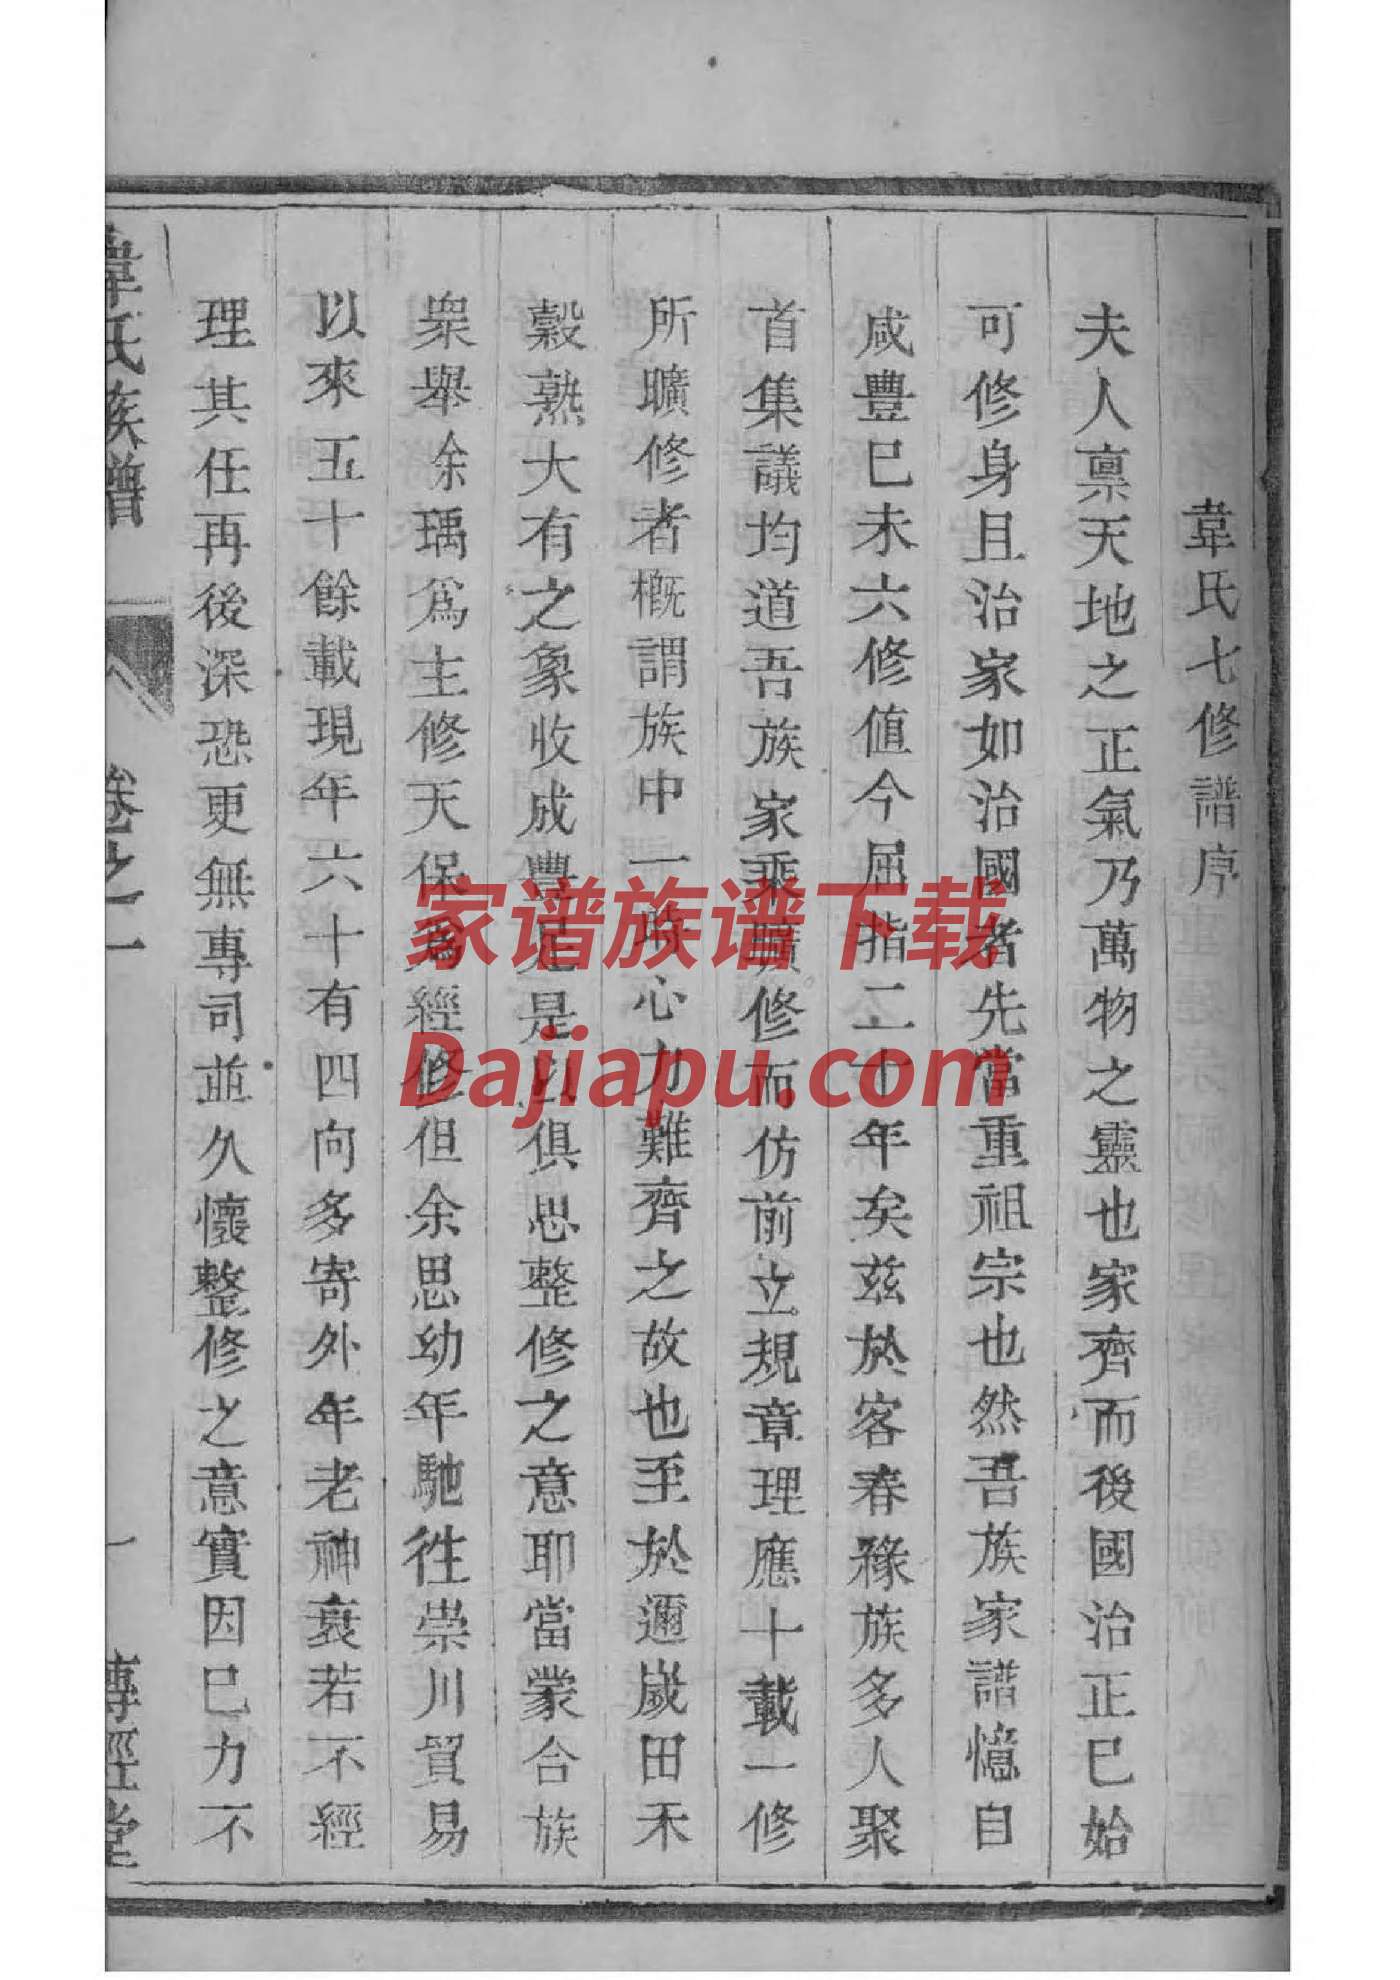 韋氏七修譜序
夫人禀天地之正氣乃萬物之靈也家齊而後國治正已始
可修身且治家如治國者先當重祖宗也然吾族家譜憶自
咸豐巳未六修值今屈指二十年矣茲於客春豫族多人聚
首集議均道吾族家乘曠修而仿前立規章理應十載一修
所曠修者概謂族中一時心力難齊之故也至於邇嵗田禾
榖熟大有之象收成豐足是以俱思整修之意耶當蒙合族
衆舉余瑀為主修天保為經修但余思幼年馳徃崇川貿易
以來五十餘載現年六十有四向多寄外年老神衰若不經
理其任再後深恐更無專司並久懷整修之意實因已力不
韋氏族譜
卷之一
一
傳經堂
家谱族谱下载
Dajiapu.com